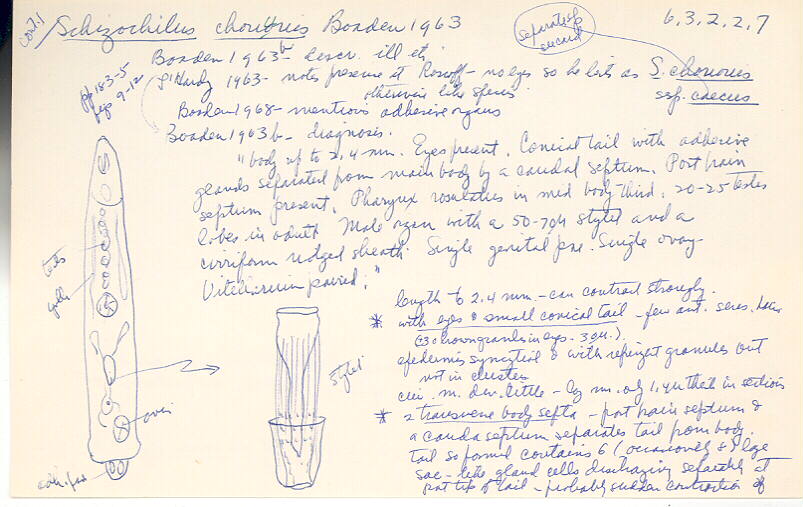 cont. /
Schizochilus choriurus Boaden 1963
separate sp. su card
6, 3, 2, 2, 7
Boaden 1963b - descr. ill etc
pp 183-5
figs 9-12
L'Hardy 1963 - notes presence at Roscoff - no eyes so he lists as S. choriurus
otherwise like species
ssp. caecus
Boaden 1968 - mentions adhesive organs
Boaden 1963b - diagnosis.
"body up to 2.4 mm. Eyes present. Conical tail with adhesive
glands separated from main body by a caudal septum. Post brain
septum present. Pharynx rosulatus in mid body third. 20-25 testes
lobes in adult Male organ with a 50-70µ stylet and a
cirriform ridged sheath. Single genital pore. Single ovary
Vitellarium paired."
testes
yolk
ovary
adh. pap
stylet
length to 2.4 mm. - can contract strongly.
* with eyes & small conical tail - few ant. sens. hairs
(30 brown granules in eyes. 3µ).
epidermis syncytial & with refringent granules but
not in clusters
circ. m. dev. little - lg mm. only 1.4µ thick in sections
* 2 transverse body septa - post brain septum &
a caudal septum separates tail from body.
tail so formed contains 6 (occasionally 8) large
sac-like gland cells discharging separately at
post tip of tail - probably sudden contraction of